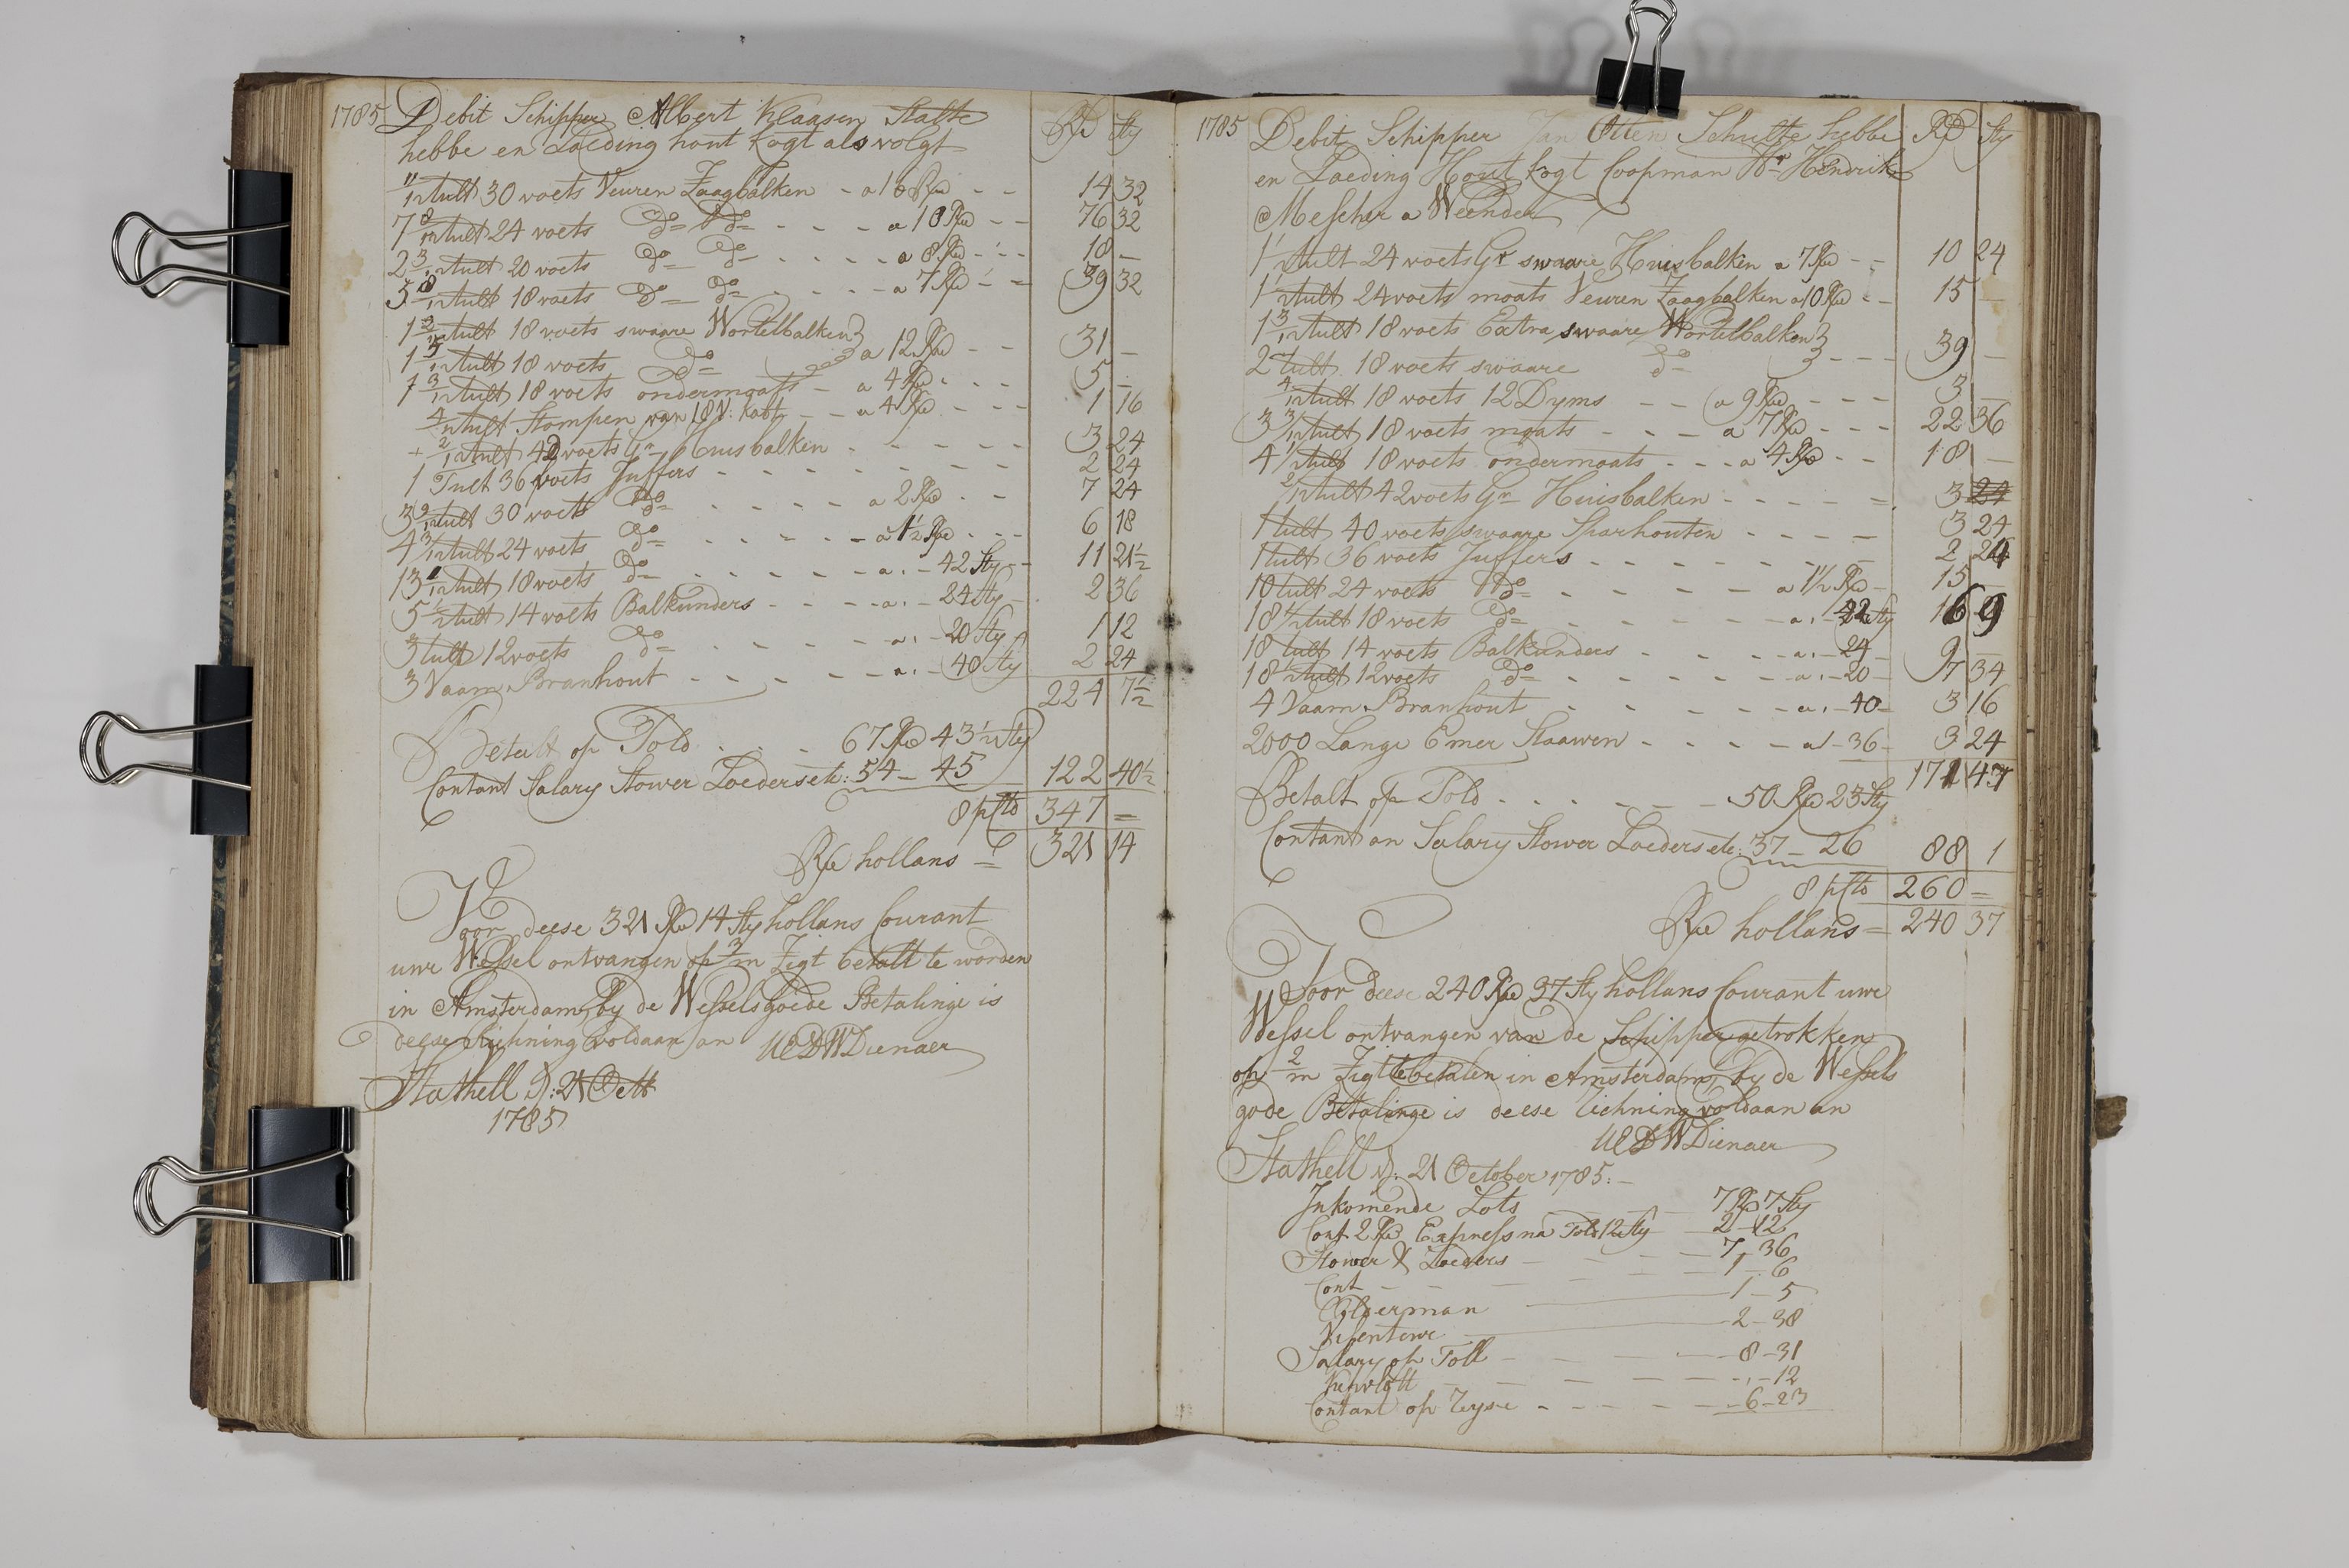 1785 Debit Schipper Albert Klaasen Stalte Rd Sty
hebbe en Laeding hout kogt als volgt
11/12 tult 30 voets Veuren Zaagbalken - a 16 Rd - - 14 32
7 8/12 tult 24 voets do do - - - - a 10 Rd - - 76 32
2 3/12 tult 20 voets do do - - - - a 8 Rd - - - 18 -
5 8/12 tult 18 voets do do - - - - a 7 Rd - - 39 32
1 2/12 tult 18 voets swaare Wortelbalken }
1 5/12 tult 18 voets do a 12 Rd - - 31 -
1 3/12 tult 18 voets ondermaats - a 4 Rd - - - 5 -
4/12 tult Stompen van 18 V: kabt - - a 4 Rd - - - 1 16
+ 2/12 tult 42 voets Gr Huisbalken - - - - - 3 24
1 Tult 36 voets Juffers - - - - - - - - 2 24
3 9/12 tult 30 voets do - - - - - a 2 Rd - - 7 24
4 3/12 tult 24 voets do - - - - - a 1½ Rd - - - 6 18
13 1/12 tult 18 voets do - - - - - a . - 42 Sty - - 11 21½
5 ½ tult 14 voets Balkunders - - - - a . - 24 Sty - 2 36
3 tult 12 voets do - - - - - a . - 20 Sty 1 12
3 Vaam Branhout - - - - - - a . - 40 Sty 2 24
224 7½
Betalt op Told - - - 67 Rd 43½ Sty
Contant Salary Stower Loeders etc: 54 - 45 122 40½
8 p Cto 347 =
Rd hollans = 321 14
Voor deese 321 Rd 14 Sty hollans Courant
uwe Wessel ontvangen op 3/m Zigt betalt te worden
in Amsterdam, by de Wessels goede Betalinge is
deese Richning voldaan an UEDWDienaer
Stathell D: 21 Octb
1785
1785 Debit Schipper Jan Otten Schulte hebbe Rd Sty
en Laeding Hout kogt Coopman Hr Hendrik
Mescher a Weender
1 ½ tult 24 voets Gr swaare Huisbalken a 7 Rd - - 10 24
1 ½ tult 24 voets maats Veuren Zaagbalken a 10 Rd - - 15 -
1 3/12 tult 18 voets Extra swaare Wortelbalken }
2 tult 18 voets swaare do } - - - 39 -
4/12 tult 18 voets 12 Dyms - - a 9 Rd - - - 3 -
3 3/12 tult 18 voets maats - - - a 7 Rd - - - 22 36
4 ½ tult 18 voets ondermaats - - - a 4 Rd - - 18 -
2/12 tult 42 voets Gr Huisbalken - - - - = 3 24
1 tult 40 voets swaare Sparhouten - - - - 3 24
1 tult 36 voets Juffers - - - - - - - - 2 24
10 tult 24 voets do - - - - - a 1½ Rd - 15 -
18 ½ tult 18 voets do - - - - - a . - 42 Sty 16 9
18 tult 14 voets Balkunders - - - - a . - 24 - 9 -
18 ½ tult 12 voets do - - - - - a . - 20 - 7 34
4 Vaam Branhout - - - - - a . - 40 - 3 16
2000 Lange Emer Staawen - - - - a . - 36 - 3 24
171 47
Betalt op Told - - - - - - 50 Rd 23 Sty
Contant an Salary Stower Loeders etc: 37 - 26 88 1
8 p Cto 260 =
Rd hollans = 240 37
Voor deese 240 Rd 37 Sty hollans Courant uwe
Wessel ontvangen van de Schipper getrokken
op 2/m Zigt te betalen in Amsterdam, by de Wessels
gode Betalinge is deese Richning voldaan an
UEDWDienaer
Stathell D: 21 October 1785: -
Inkomende Lots - - 7 Rd 7 Sty
Cont 2 Rd Express na Told 12 Sty - 2 - 12
Stower & Loeders - - - - 7 - 36
Cont - - - - - 1 - 6
Olderman - 1 - 5
Visenteur - 2 - 38
Salary op Toll - - - - 8 - 31
- - - - - . - 12
Contant op Reyse - - - - - 6 - 23